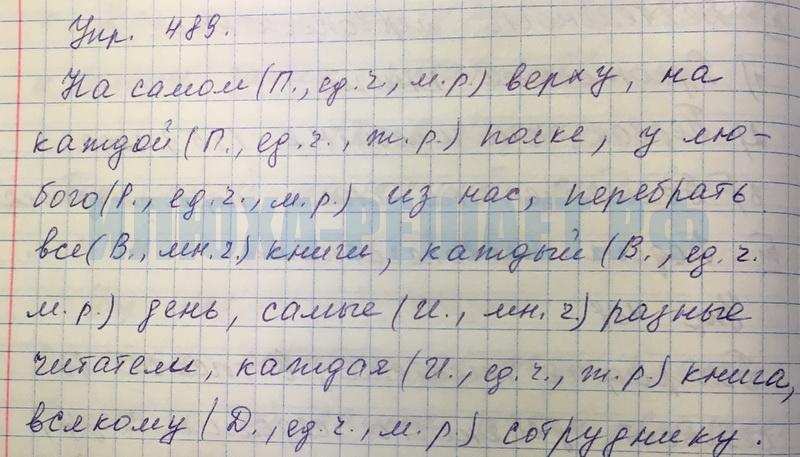 Упр. 489.
На самом (П., ед.ч., м.р.) верху, на
каждой (П., ед.ч., ж.р.) полке, у лю-
бого (Р., ед.ч., м.р.) из нас, перебрать
все (В., мн.ч.) книги, каждый (В., ед.ч.
м.р.) день, самые (И., мн.ч.) разные
читатели, каждая (И., ед.ч., ж.р.) книга,
всякому (Д., ед.ч., м.р.) сотруднику.
ИЛЮХА-РЕШАЕТ.РФ